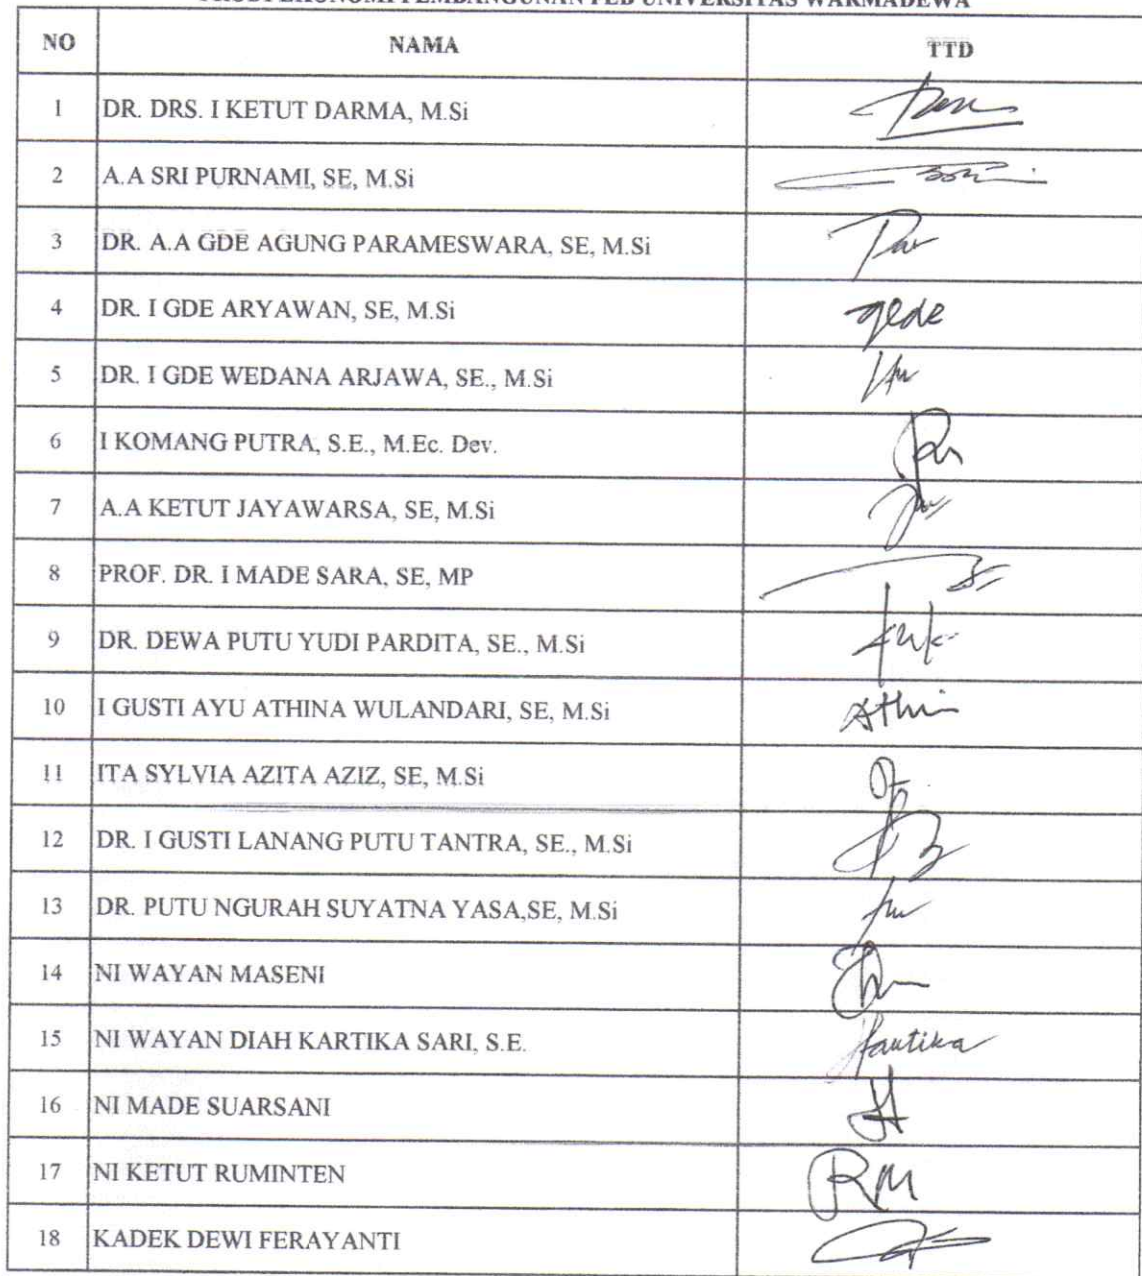 PRODI EKONOMI PEMBANGUNAN FEB UNIVERSITAS WARMADEWA
NO NAMA TTD
1 DR. DRS. I KETUT DARMA, M.Si
2 A.A SRI PURNAMI, SE, M.Si
3 DR. A.A GDE AGUNG PARAMESWARA, SE, M.Si
4 DR. I GDE ARYAWAN, SE, M.Si gede
5 DR. I GDE WEDANA ARJAWA, SE., M.Si
6 I KOMANG PUTRA, S.E., M.Ec. Dev.
7 A.A KETUT JAYAWARSA, SE, M.Si
8 PROF. DR. I MADE SARA, SE, MP
9 DR. DEWA PUTU YUDI PARDITA, SE., M.Si
10 I GUSTI AYU ATHINA WULANDARI, SE, M.Si Athin
11 ITA SYLVIA AZITA AZIZ, SE, M.Si
12 DR. I GUSTI LANANG PUTU TANTRA, SE., M.Si
13 DR. PUTU NGURAH SUYATNA YASA,SE, M.Si
14 NI WAYAN MASENI
15 NI WAYAN DIAH KARTIKA SARI, S.E.
16 NI MADE SUARSANI
17 NI KETUT RUMINTEN RM
18 KADEK DEWI FERAYANTI